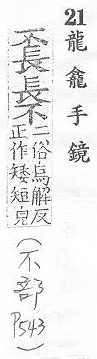 21 龍龕手鏡
⿱不長⿱長不
二俗烏解反
正作矮短皃
(不部 P543)